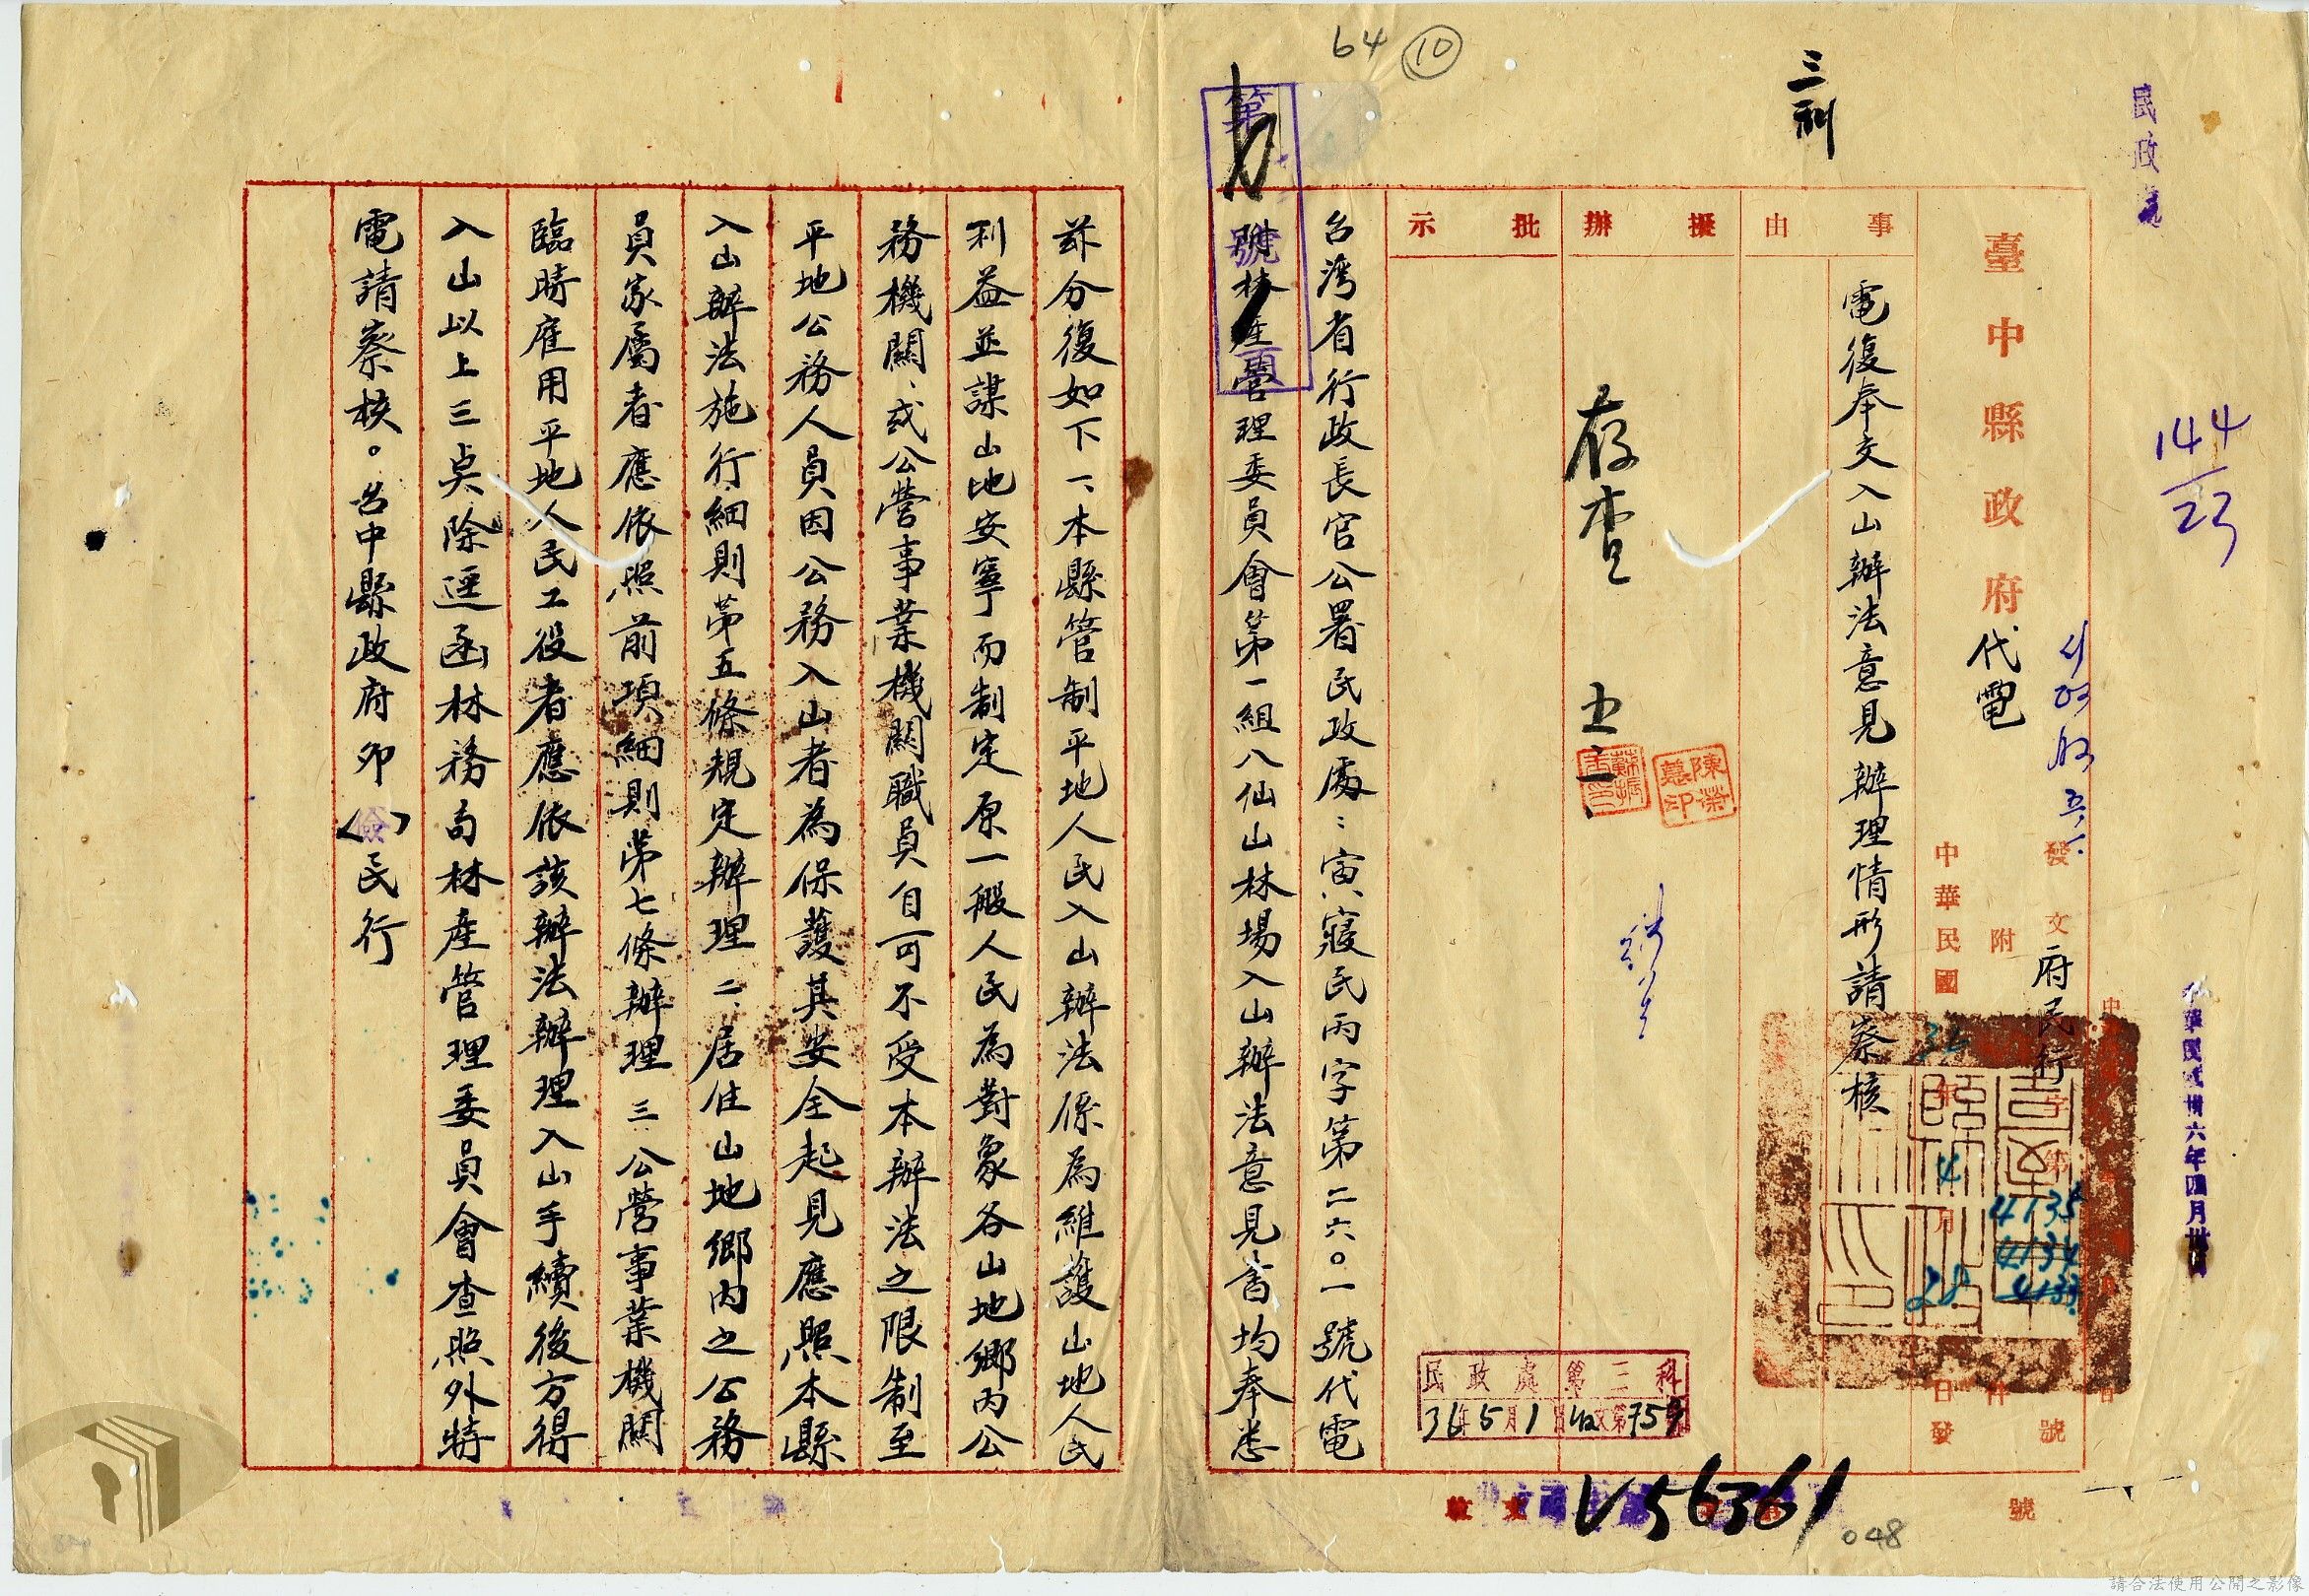 64 ⑩
144
23
臺中縣政府代電
發文府民行字第號
4135
4134
4133
附件
中華民國36年4月28日發
事由
電復奉交入山辦法意見辦理情形請察核
擬辦
批示
存查
陳榮
印
台湾省行政長官公署民政處：寅寢民丙字第二六〇一號代電
林產管理委員會第一組八仙山林場入山辦法意見書均奉悉
茲分復如下一、本縣管制平地人民入山辦法係為維護山地人民
利益並謀山地安寧而制定原一般人民為對象各山地鄉內公
務機關、或公營事業機関職員自可不受本辦法之限制至
平地公務人員因公務入山者為保護其安全起見應照本縣
入山辦法施行細則第五條規定辦理二、居住山地鄉內之公務
員家屬者應依照前項細則第七條辦理三、公營事業機関
臨時雇用平地人民工役者應依該辦法辦理入山手續後方得
入山以上三点除逕函林務局林產管理委員會查照外特
電請察核。台中縣政府卯（儉）民行
民政處第三科
36年5月1日收文第759號
中華民國卅六年四月卅日
第號
56361
048
請合法使用公開之影像